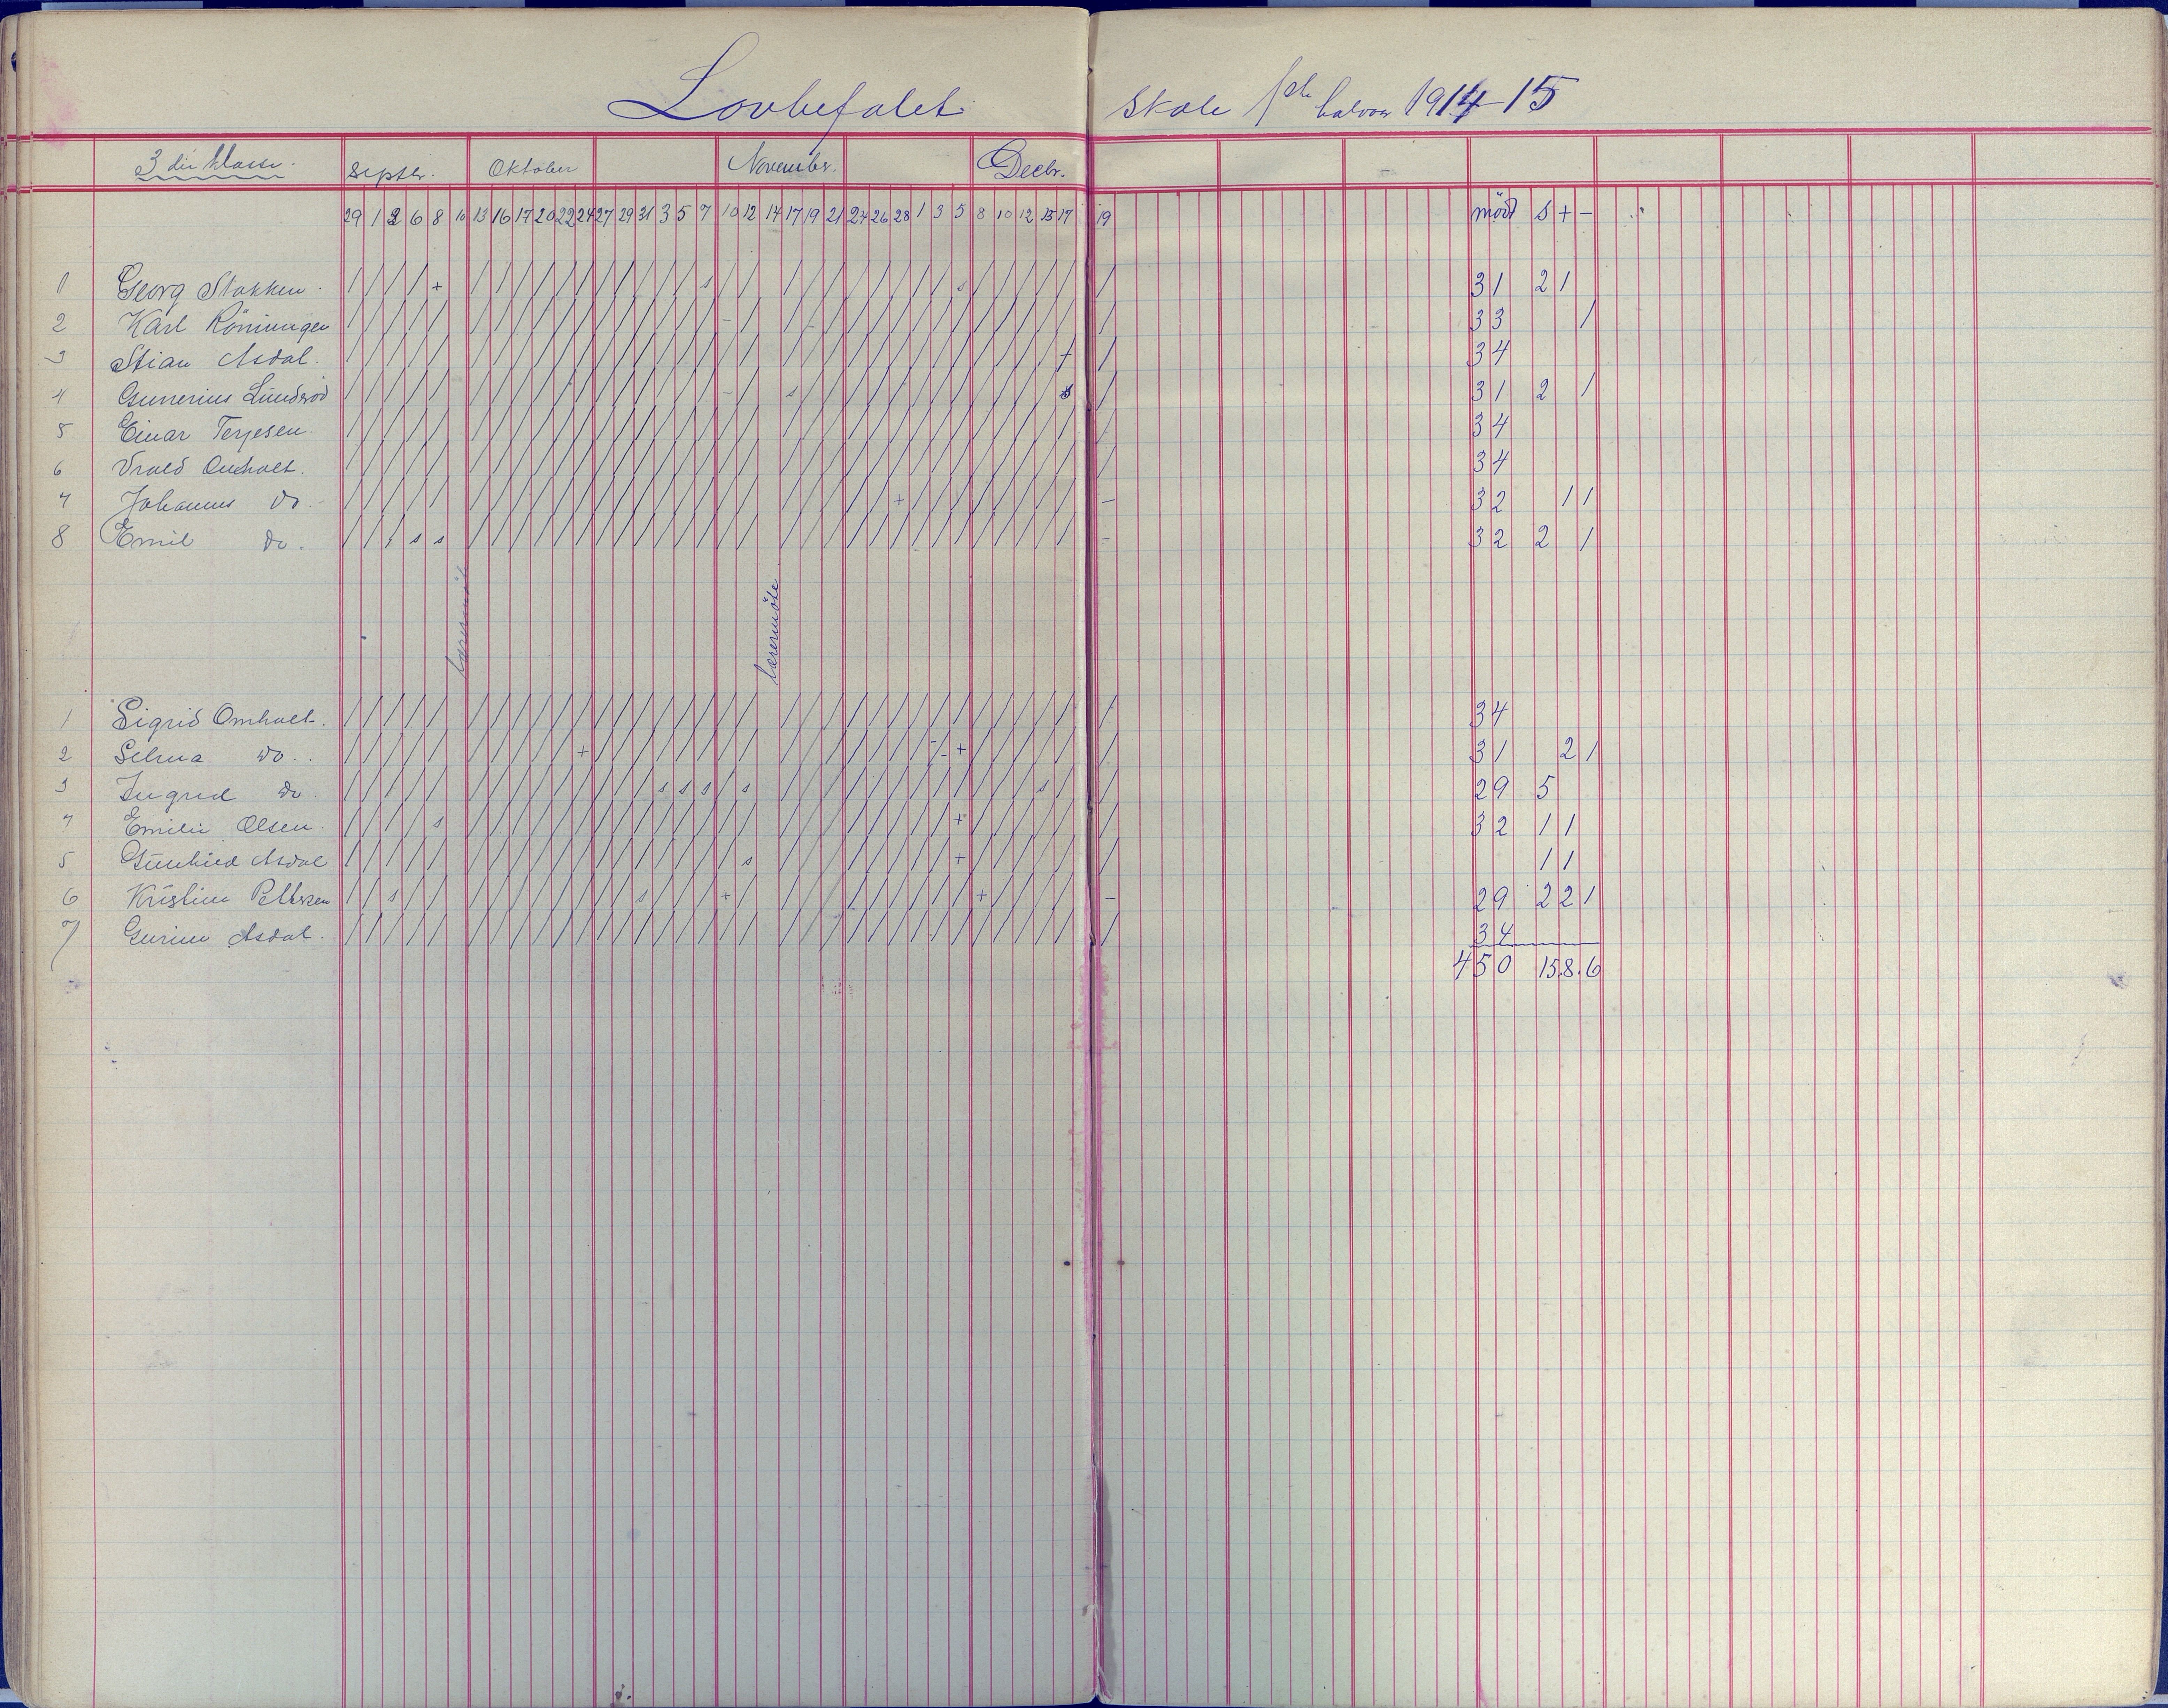 Lovbefalet skole 1ste halvaar 1914-15
3die klasse. Septbr. Oktober November. Decbr.
29 1 3 6 8 10 13 16 17 20 22 24 27 29 31 3 5 7 10 12 14 17 19 21 24 26 28 1 3 5 8 10 12 15 17 19 mödt s + -
1 Georg Stokken. / / / / + / / / / / / / / / / / s / / / / / / / / / / s / / / / / / 31 2 1
2 Karl Röningen 33 1
3 Stian Asdal. 34
4 Gunerius Lundsröd 31 2 1
5 Einar Terjesen. 34
6 Vrold Omholt. 34
7 Johannes do. 32 1 1
8 Emil do. 32 2 1
lærermöte
lærermöte
1 Sigrid Omholt. 34
2 Selma do.. 31 2 1
3 Ingrid do. 29 5
4 Emilie Olsen. 32 1 1
5 Gunhild Asdal 1 1
6 Kristine Pettersen 29 2 2 1
7 Gurine Asdal. 34
450 15.8.6